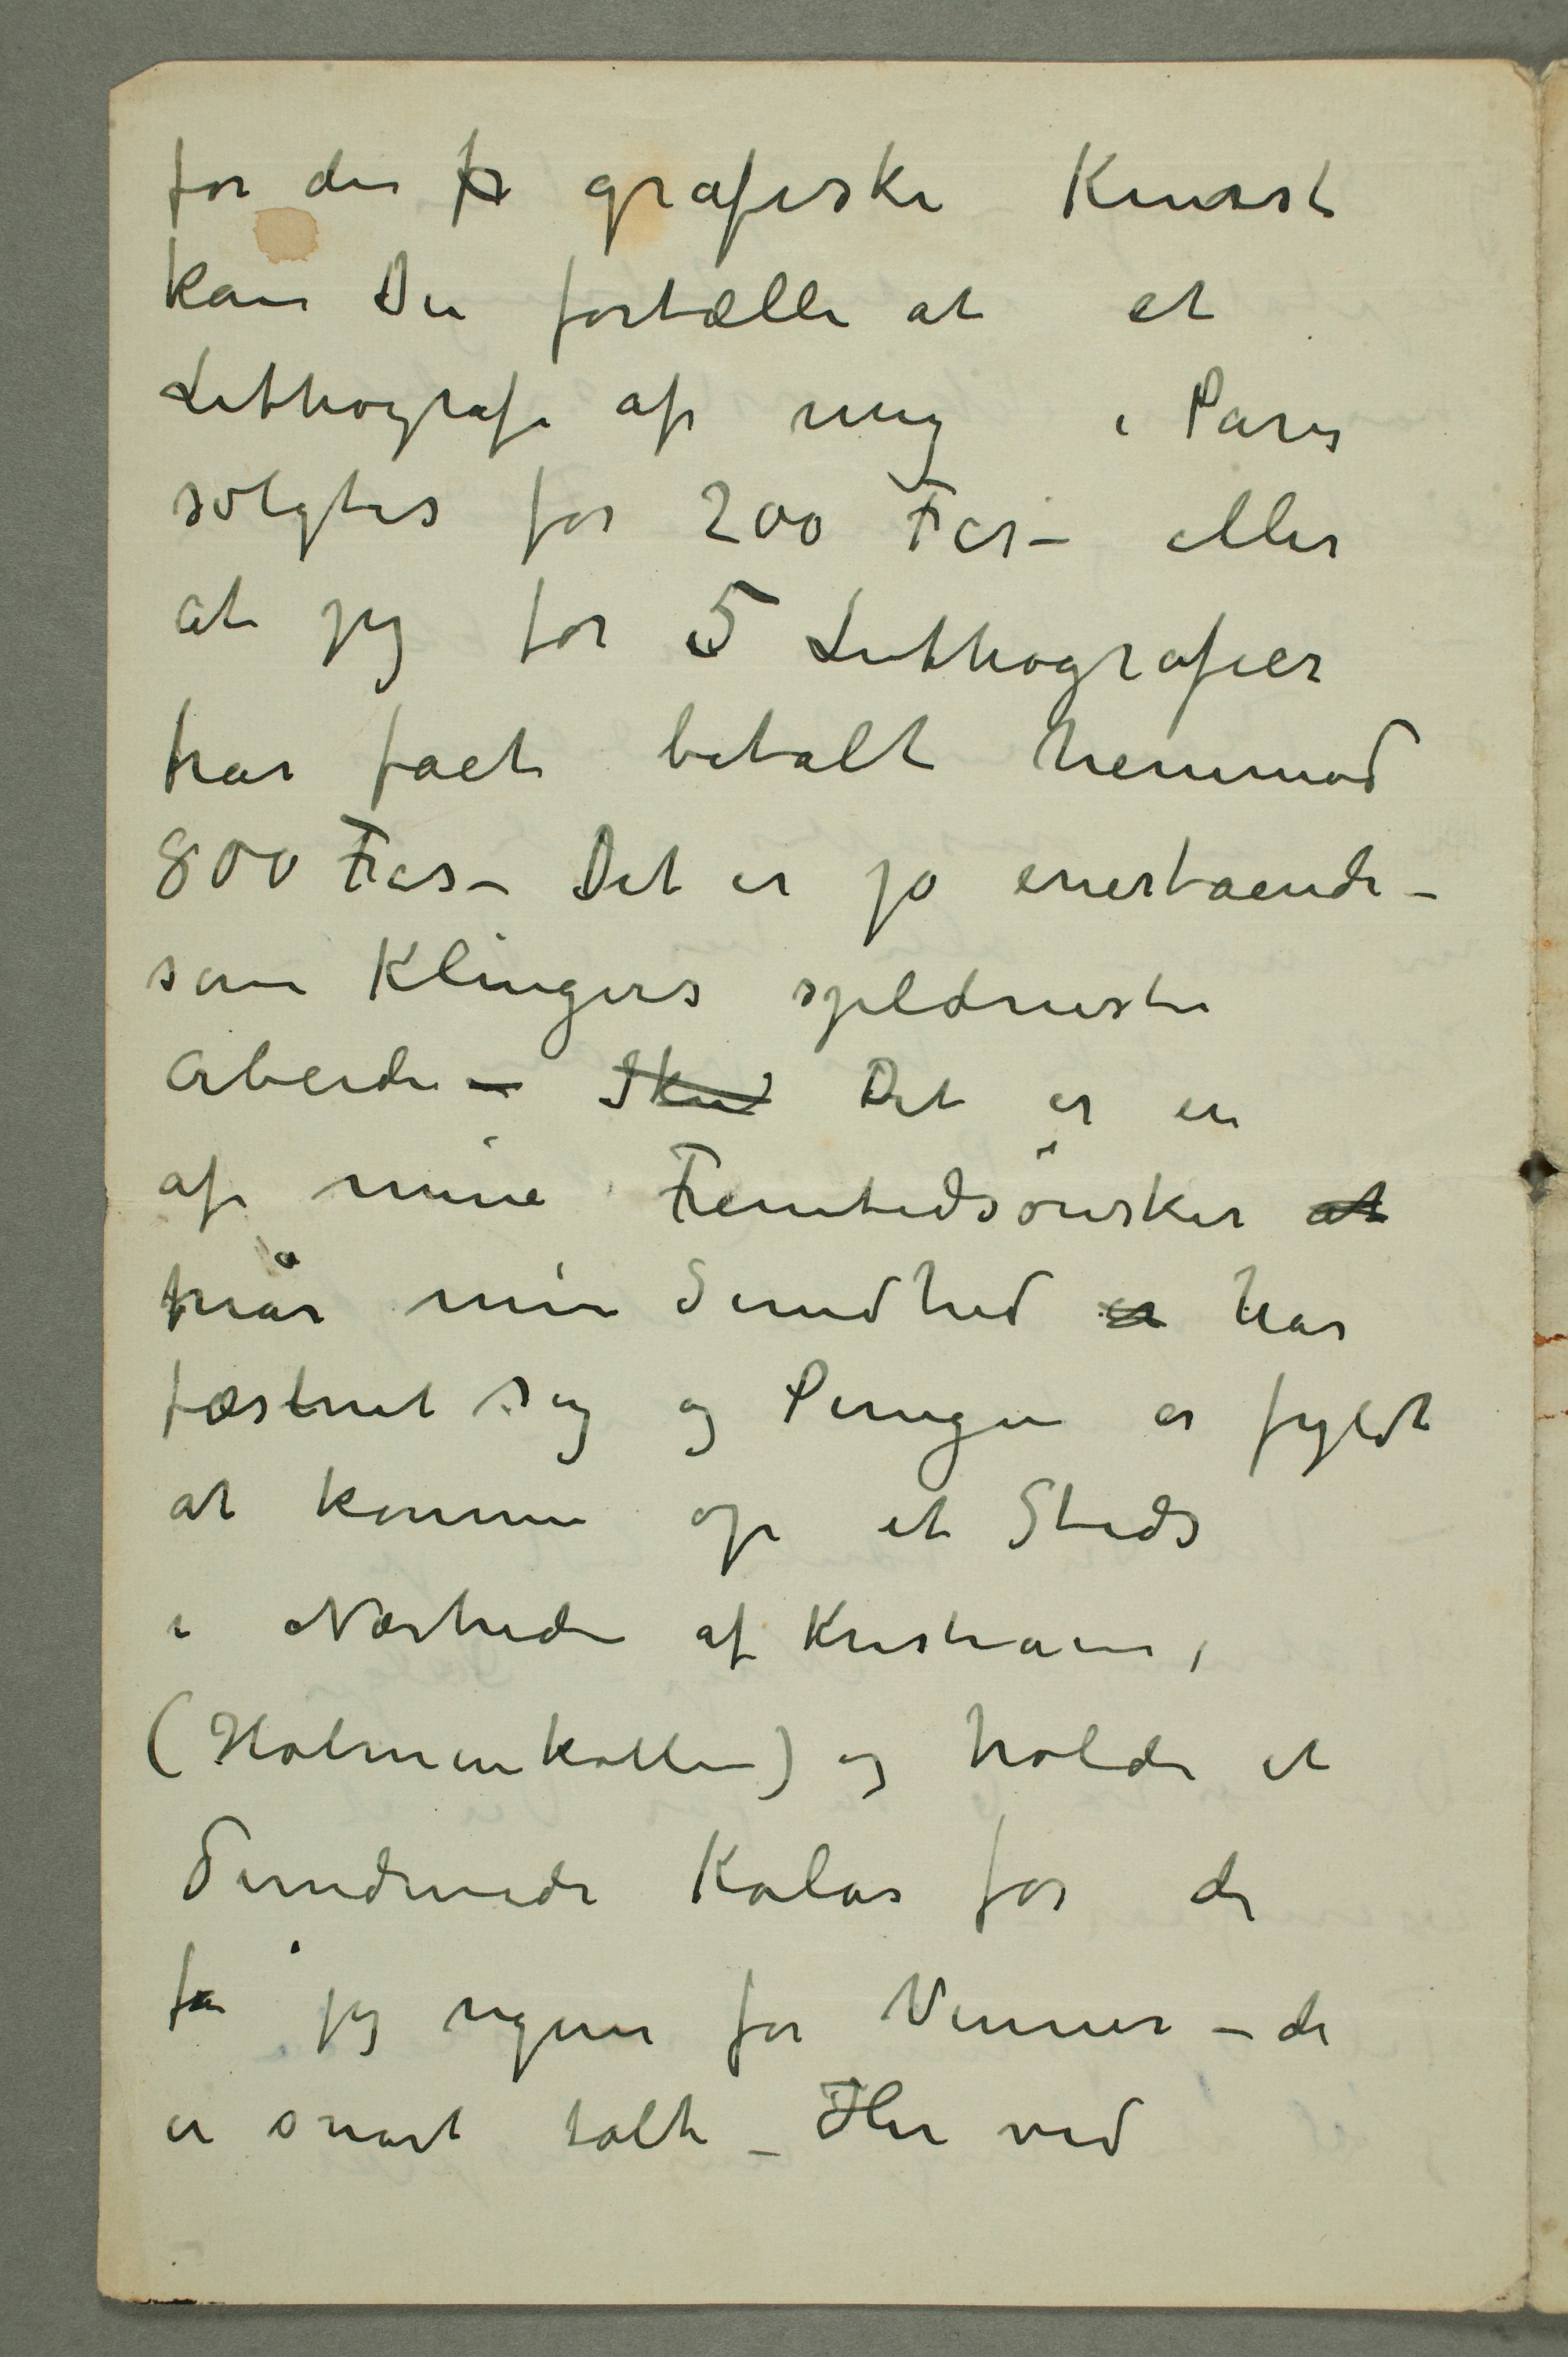 for den fr grafiske Kunst
kan Du fortælle at et
Lithografi af mig i Paris
solgtes for 200 Fcs – eller
at jeg for 5 Lithografier
har faet betalt henimod
800 Frcs – Det er jo enestaaende –
som Klingers sjeldneste
arbeide – Sku Det er en
af mine Fremtidsönsker at
når min Sundhed er har
fæstnet sig og Pungen er fyldt
at komme op et Steds
i Nærheden af Kristiania,
(Holmenkollen) og holde et
Sundmede Kalas for de
få jeg regner for Venner – de
er snart talt – Her ved